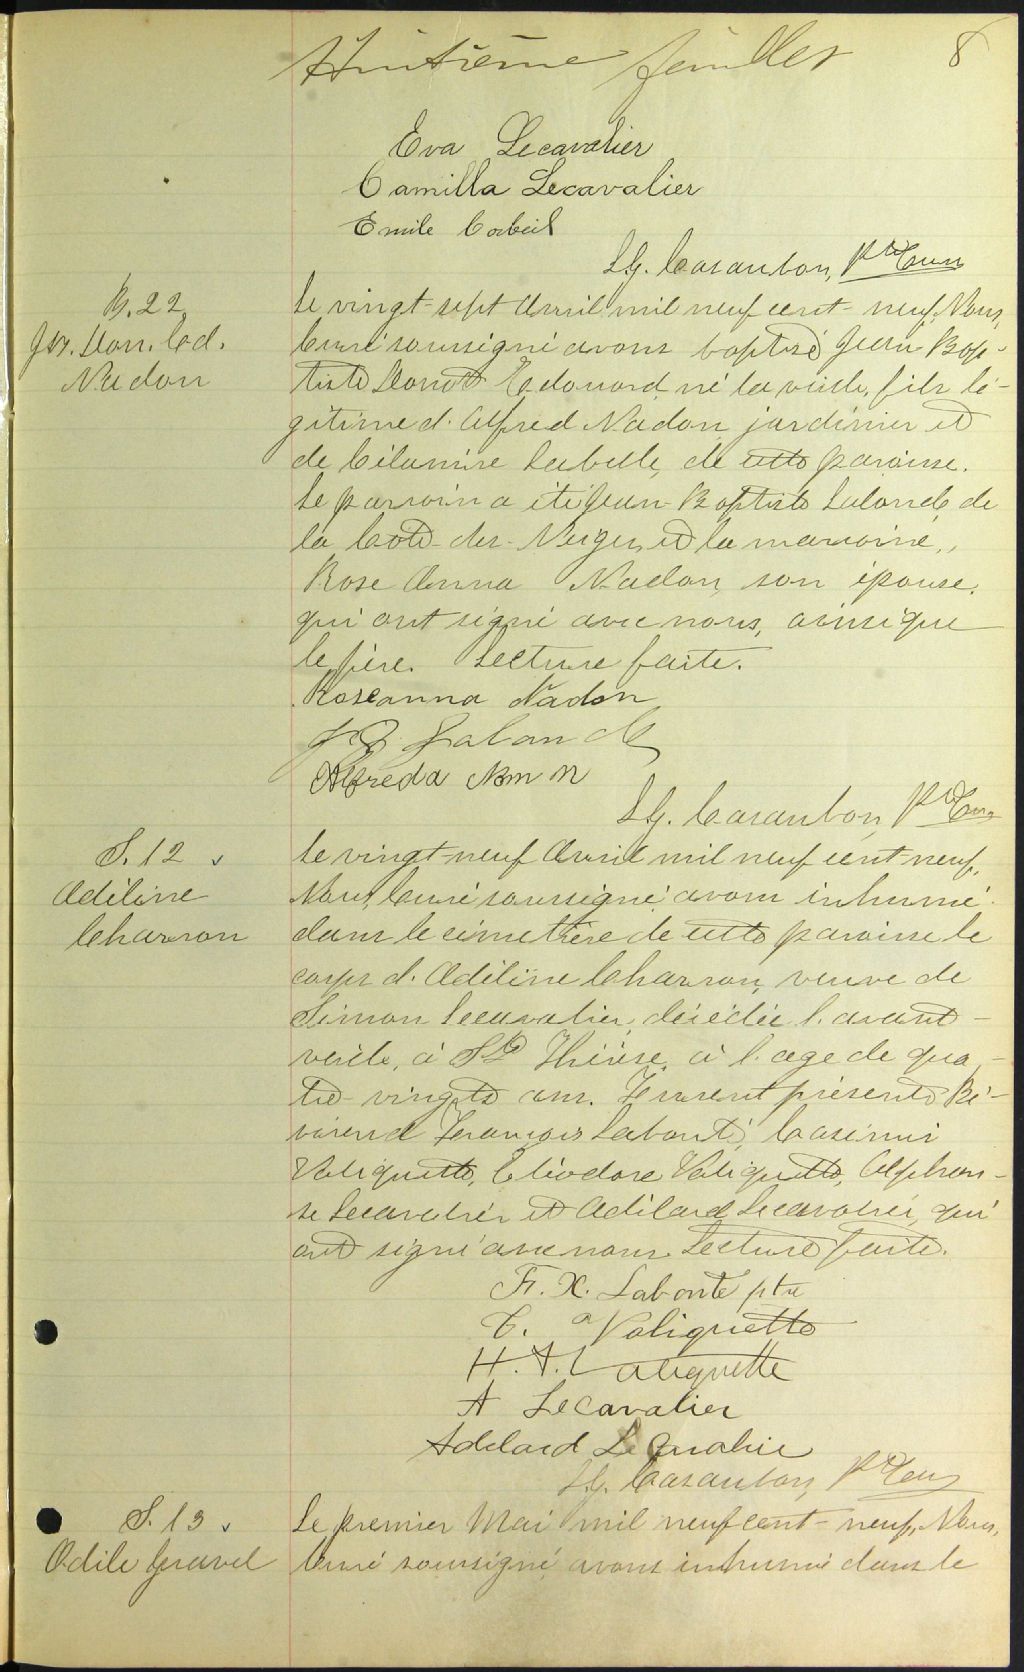 Huitième feuillet 8
Eva Lecavalier
Camilla Lecavalier
Emile Corbeil
L.G. Casaubon, Ptre Curé
B. 22
Jos. Don. Ed.
Nadon
Le vingt-sept Avril mil neuf cent-neuf, Nous,
Curé soussigné avons baptisé Jean-Bap-
tiste Donat Edouard, né la veille, fils lé-
gitime d'Alfred Nadon, jardinier et
de Célanire Labelle, de cette paroisse.
Le parrain a été Jean-Baptiste Lalonde de
la Cote-des-Neiges, et la marraine,
Rose Anna Nadon, son épouse,
qui ont signé avec nous, ainsi que
le père. Lecture faite.
Roseanna Nadon
J.B. Lalonde
Alfred
L.G. Casaubon, Ptre Curé
S. 12
Adéline
Charron
Le vingt-neuf Avril mil neuf cent-neuf,
Nous, Curé soussigné avons inhumé
dans le cimetière de cette paroisse le
corps d'Adéline Charron, veuve de
Simon Lecavalier, décédée l'avant-
veille, à Ste Thérèse, à l'age de qua-
tre-vingts ans. Furent présents Ré-
vérend François Labonté, Casimir
Valiquette, Cléodore Valiquette, Alphon-
se Lecavalier et Adélard Lecavalier, qui
ont signé avec nous. Lecture faite.
F. X. Labonté ptre
C. Valiquette
H. A. Valiquette
A Lecavalier
Adelard LeCavalier
L.G. Casaubon, Ptre Curé
S. 13
Odile Gravel
Le premier Mai mil neuf cent-neuf, Nous,
Curé soussigné, avons inhumé dans le